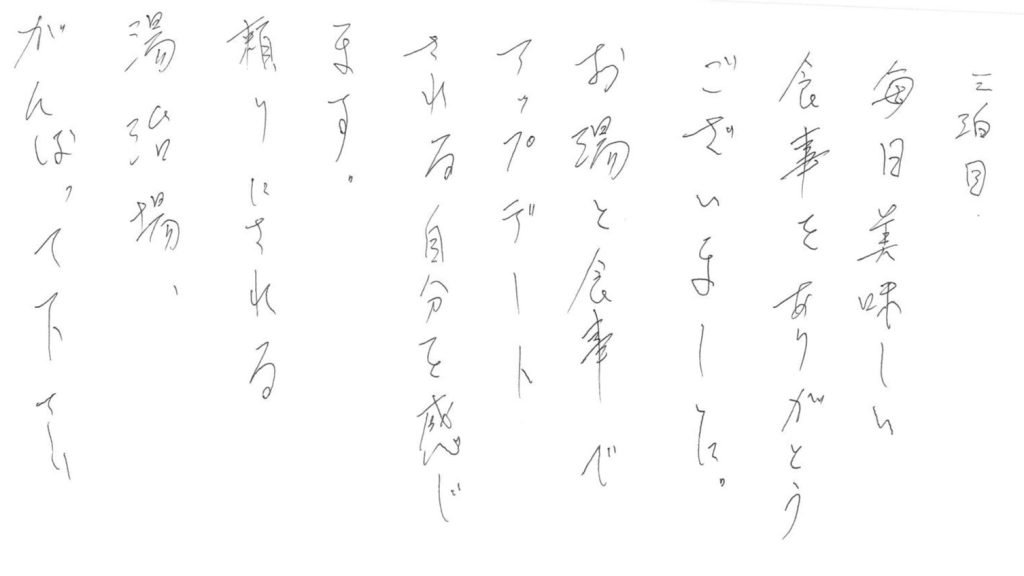 三泊目.
毎日美味しい
食事をありがとう
ございました。
お湯と食事で
アップデート
される自分を感じ
ます。
頼りにされる
湯治場、
がんばって下さい